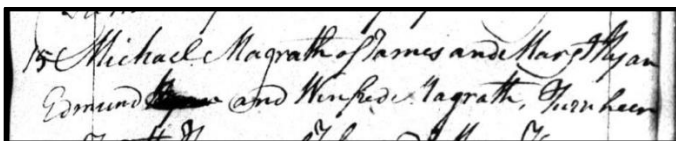 15 Michael Magrath of James and Margt Ryan
Edmund and Winfred Magrath, Turnheen